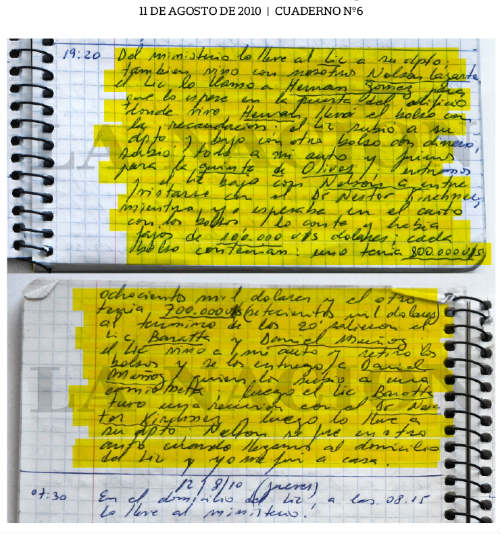 11 DE AGOSTO DE 2010 | CUADERNO Nº6
19:20 Del ministerio lo lleve al Lic a su dpto,
tambien vino con nosotros Nelson Lazarte
el Lic lo llamo a Hernan Gomez para
que lo espere en la puerta del edificio
donde vive Hernan, lleve el bolso con
la recaudacion. el Lic subio a su
dpto y bajo con otro bolso con dinero,
subio todo a mi auto y fuimos
para la quinta de Olivos, entramos
el Lic bajo con Nelson a entre
vistarse con el Dr Nestor Kirchner,
mientras yo esperaba en el auto
con los bolsos lo conte y habia
fajos de 100.000 U$S dolares; cada
bolso contenian: uno tenia 800.000 U$S
ochocientos mil dolares y el otro
tenia 700.000 U$S (setecientos mil dolares)
al termino de los 20' salieron el
Lic Baratta y Daniel Muñoz
el Lic vino a mi auto y retiro los
bolsos y se los entrego a Daniel
Muñoz quien los subio a una
camioneta; luego el Lic Baratta
tuvo una reunion con el Dr Nes-
tor Kirchner, luego lo lleve a
su dpto, Nelson se fue en otro
auto, cuando llegamos al domicilio
del Lic y yo me fui a casa.
12/8/10 (jueves)
07:30 En el domicilio del Lic, a las 08.15
lo lleve al ministerio.
LA NACION
LA NACION